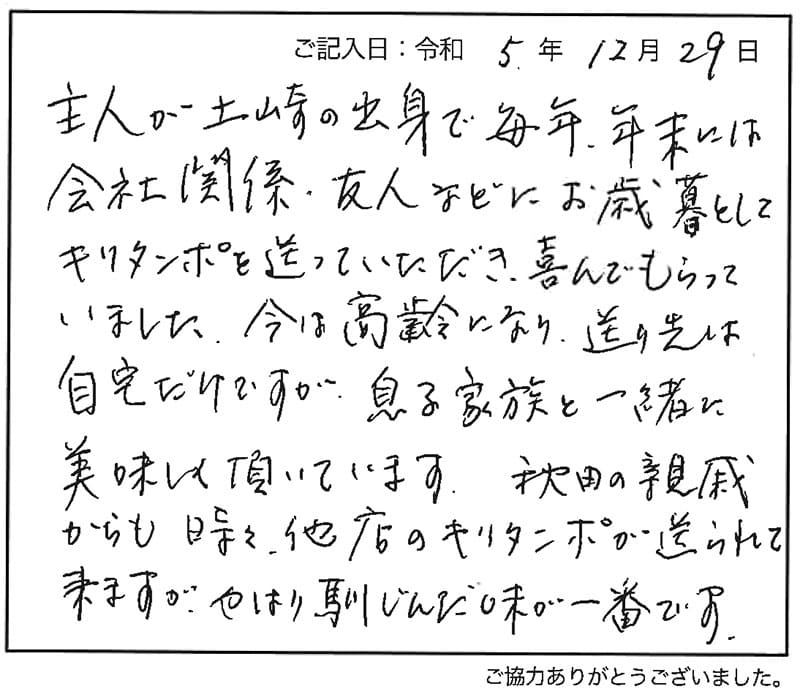 ご記入日：令和 5 年 12 月 29 日
主人が土崎の出身で毎年、年末には
会社関係・友人などにお歳暮として
キリタンポを送っていただき、喜んでもらって
いました。今は高齢になり、送り先は
自宅だけですが、息子家族と一緒に
美味しく頂いています。秋田の親戚
からも時々、他店のキリタンポが送られて
来ますが、やはり馴じんだ味が一番です。
ご協力ありがとうございました。